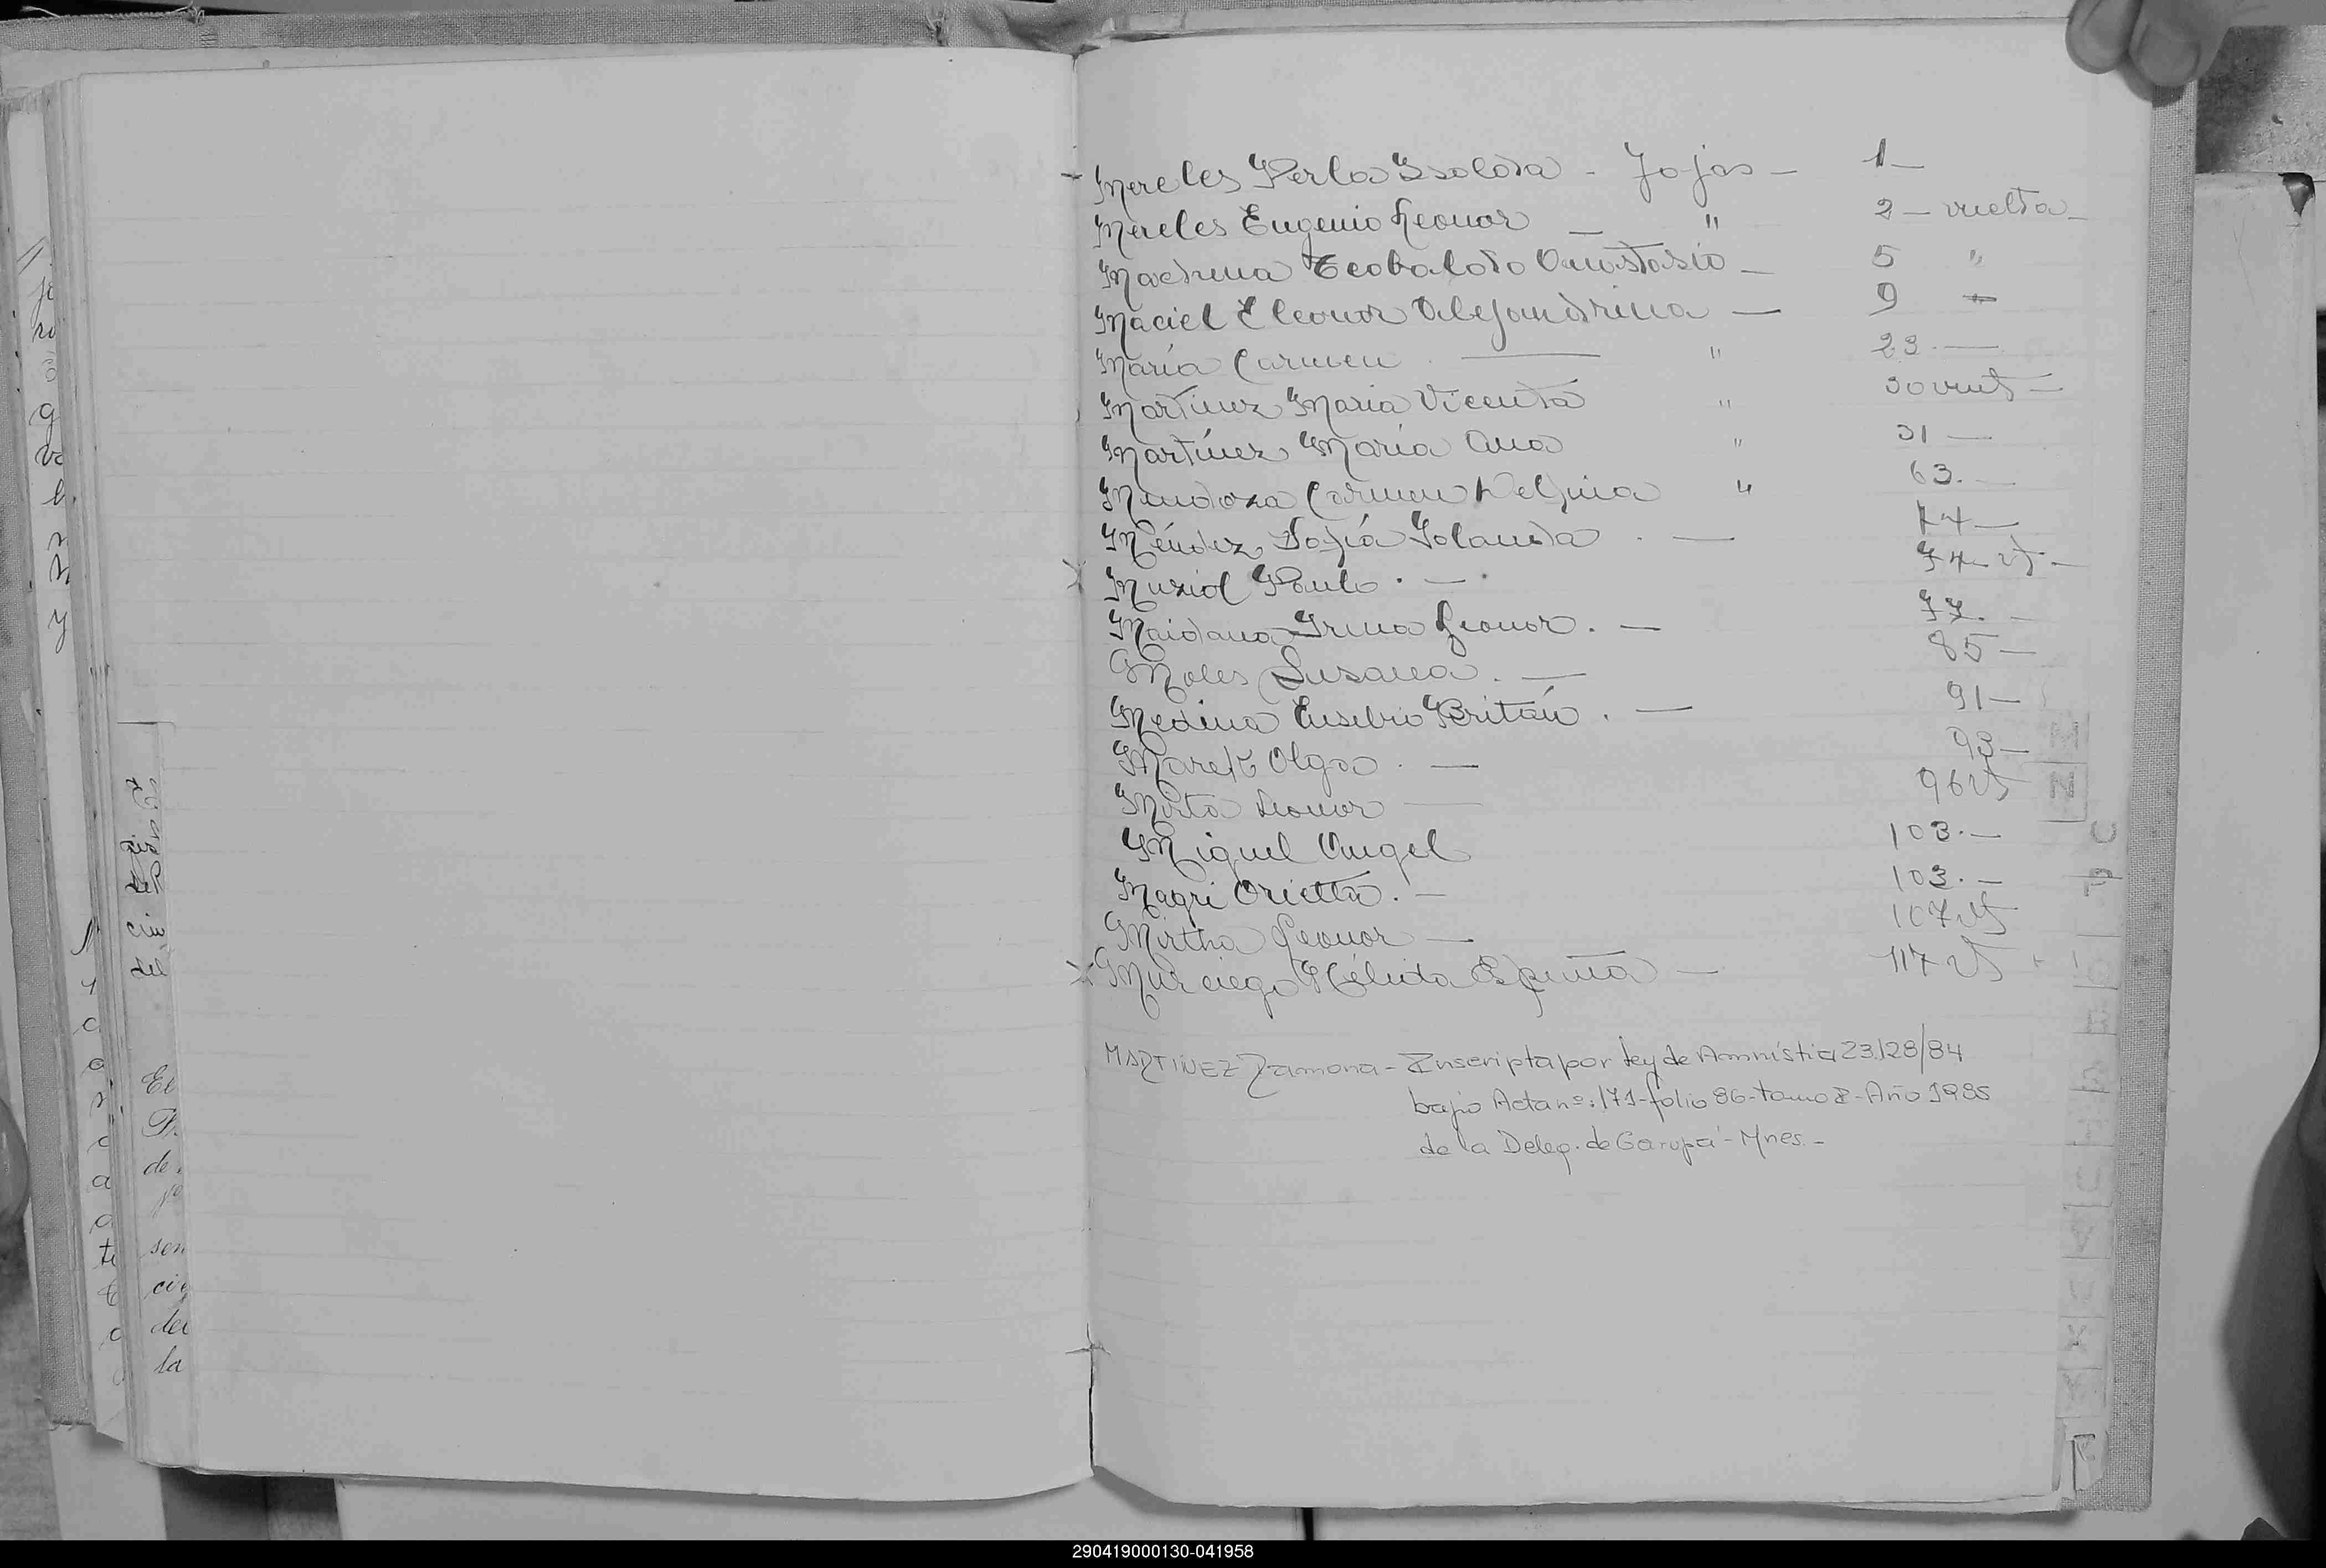 Mereles Perla Isolda - Fojas - 1 -
Mereles Eugenio Leonor - " 2 - vuelta -
Teobaldo Anastasio - 5 "
Maciel Eleonor Alejandrina - 9 -
María Carmen . - " 29 . -
Martínez Maria Vicenta " 30 vuelt -
Martínez María Ana " 31 -
Mendoza Carmen Delfina " 63. -
Méndez Sofía Iolanda . - 74 -
Muziol Paulo . - . 74 - vt. -
Maidana Irma Leonor . - 77. -
Moles Susana . - 85 -
Medina Eusebio Britán . - 91 -
Olga . - 93 -
Mirta Leonor - 96 vt
Miguel Angel 103. -
Magri Orietta . - 103. -
Mirtha Leonor - 107 vt
Murciego Nélida - 117 vt
MARTINEZ Ramona - Inscripta por ley de Amnistia 23.128/84
bajo Acta nº: 171 - folio 86 - tomo I - Año 1985
de la Deleg. de Garupá - Mnes. -
El
de
sen
del
la
290419000130-041958